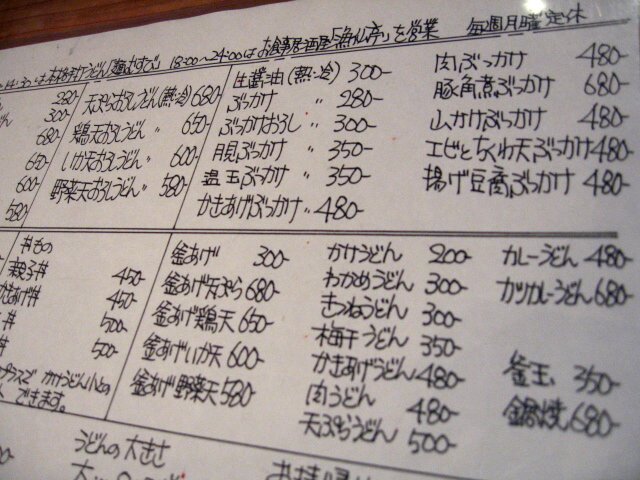 うどん(麺おすすめ) 18:00〜24:00は お食事居酒屋「漁仏亭」を営業 毎週月曜定休
280-
300-
680-
650-
600-
580-
天ぷらおろしうどん(熱・冷) 680-
鶏天おろしうどん 〃 650-
いか天おろしうどん 〃 600-
野菜天おろしうどん 〃 580-
生醤油(熱・冷) 300-
ぶっかけ 〃 280-
ぶっかけおろし 〃 300-
月見ぶっかけ 〃 350-
温玉ぶっかけ 〃 350-
かきあげぶっかけ 〃 480-
肉ぶっかけ 480-
豚角煮ぶっかけ 680-
山かけぶっかけ 480-
エビとちくわ天ぶっかけ 480-
揚げ豆腐ぶっかけ 480-
丼もの
親子丼 450-
かきあげ丼 450-
丼 500-
丼 500-
プラスで かけうどん小との
できます。
釜あげ 300-
釜あげ天ぷら 680-
釜あげ鶏天 650-
釜あげいか天 600-
釜あげ野菜天 580-
かけうどん 200-
わかめうどん 300-
きつねうどん 300-
梅干うどん 350-
かきあげうどん 480-
肉うどん 480-
天ぷらうどん 500-
カレーうどん 480-
カツカレーうどん 680-
釜玉 350-
鍋焼 680-
うどんの大きさ
お持帰り